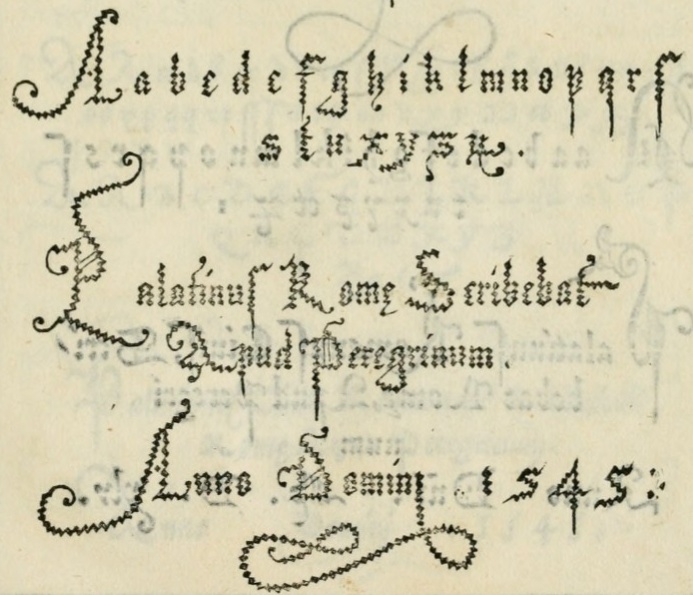 A a b c d e f g h i k l m n o p q r ſ
s t u x y z &.
Palatinuſ Rome Scribebat
Apud Peregrinum.
Anno Dominj. 1545: